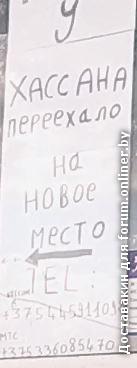 У
ХАССАНА
переехало
на
НОВОЕ
МЕСТО
TEL:
+37544591109
МТС
+375336085470
Доставакин для forum.onliner.by